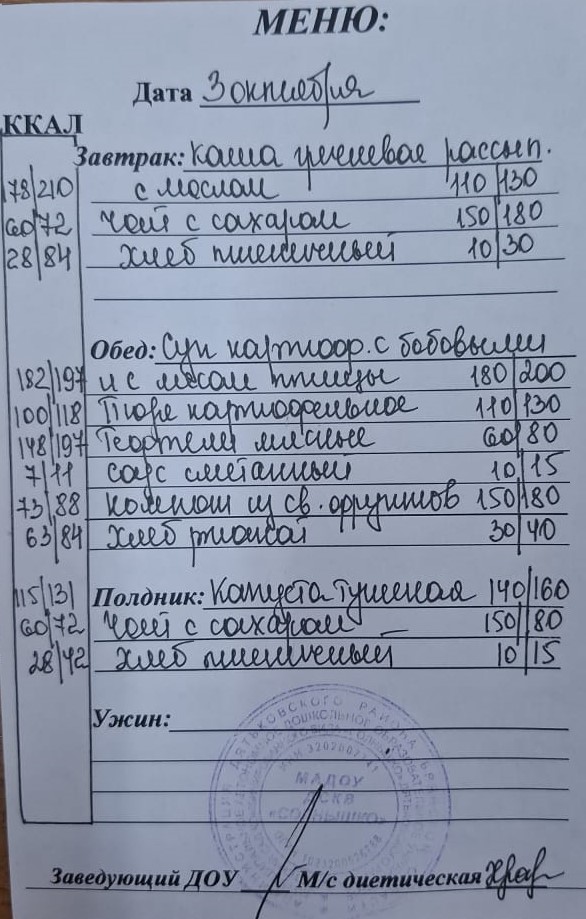 МЕНЮ:
Дата 3 октября
ККАЛ
Завтрак: каша гречневая рассып.
78/210 с маслом 110/130
60/72 чай с сахаром 150/180
28/84 хлеб пшеничный 10/30
Обед: Суп картоф. с бобовыми
182/197 и с мясом птицы 180/200
100/118 Пюре картофельное 110/130
148/197 Тефтели мясные 60/80
7/11 соус сметанный 10/15
73/88 компот из св. фруктов 150/180
63/84 хлеб ржаной 30/40
115/131 Полдник: Капуста тушеная 140/160
60/72 чай с сахаром 150/180
28/42 хлеб пшеничный 10/15
Ужин:
МАДОУ
ДСКВ
«СОЛНЫШКО»
Заведующий ДОУ М/с диетическая